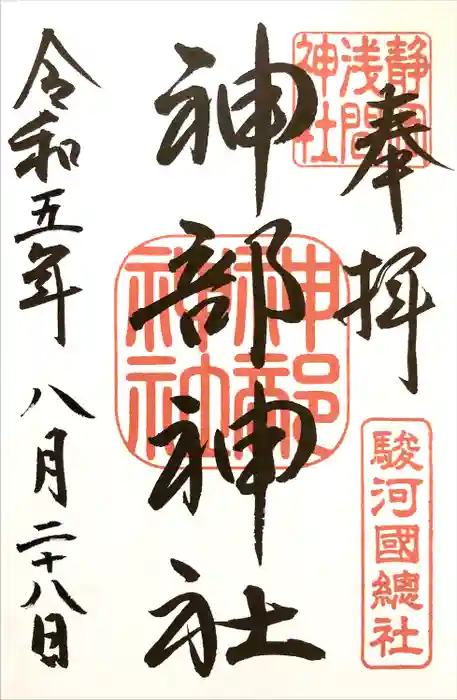 奉拝
静岡浅間神社
駿河國總社
神部神社
神部神社
令和五年 八月二十八日